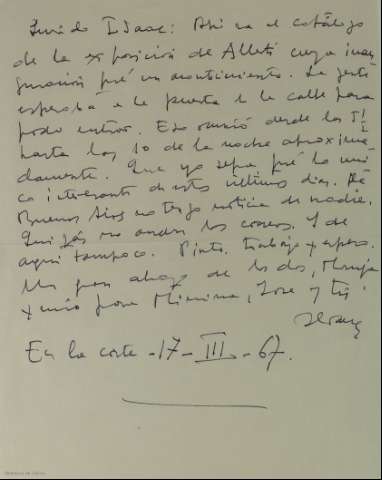 Querido Isaac: Ahí va el catálogo
de la exposición de Alberti cuya inau
guración fué un acontecimiento. La gente
esperaba a la puerta en la calle para
poder entrar. Eso ocurrió desde las 7½
hasta las 10 de la noche aproxima
damente. Que yo sepa fué la úni
ca interesante de estos últimos días. De
Buenos Aires no tengo noticia de nadie.
Quizás no andan los correos. Y de
aquí tampoco. Pinto, trabajo y espero.
Un gran abrazo de los dos, Maruja
y mío para Mimina, Jose y tú.
En la corte - 17 - III - 67.